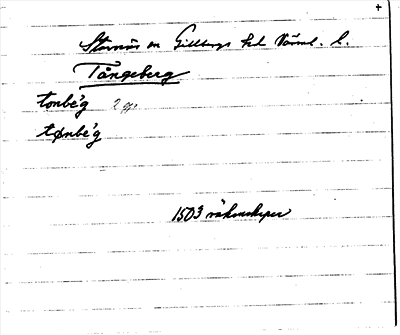 +
Stavnäs sn Gillbergs hd Värml. l.
Tångeberg
tonbé'g 2 gr
tønbé'g
1503 räkenskaper